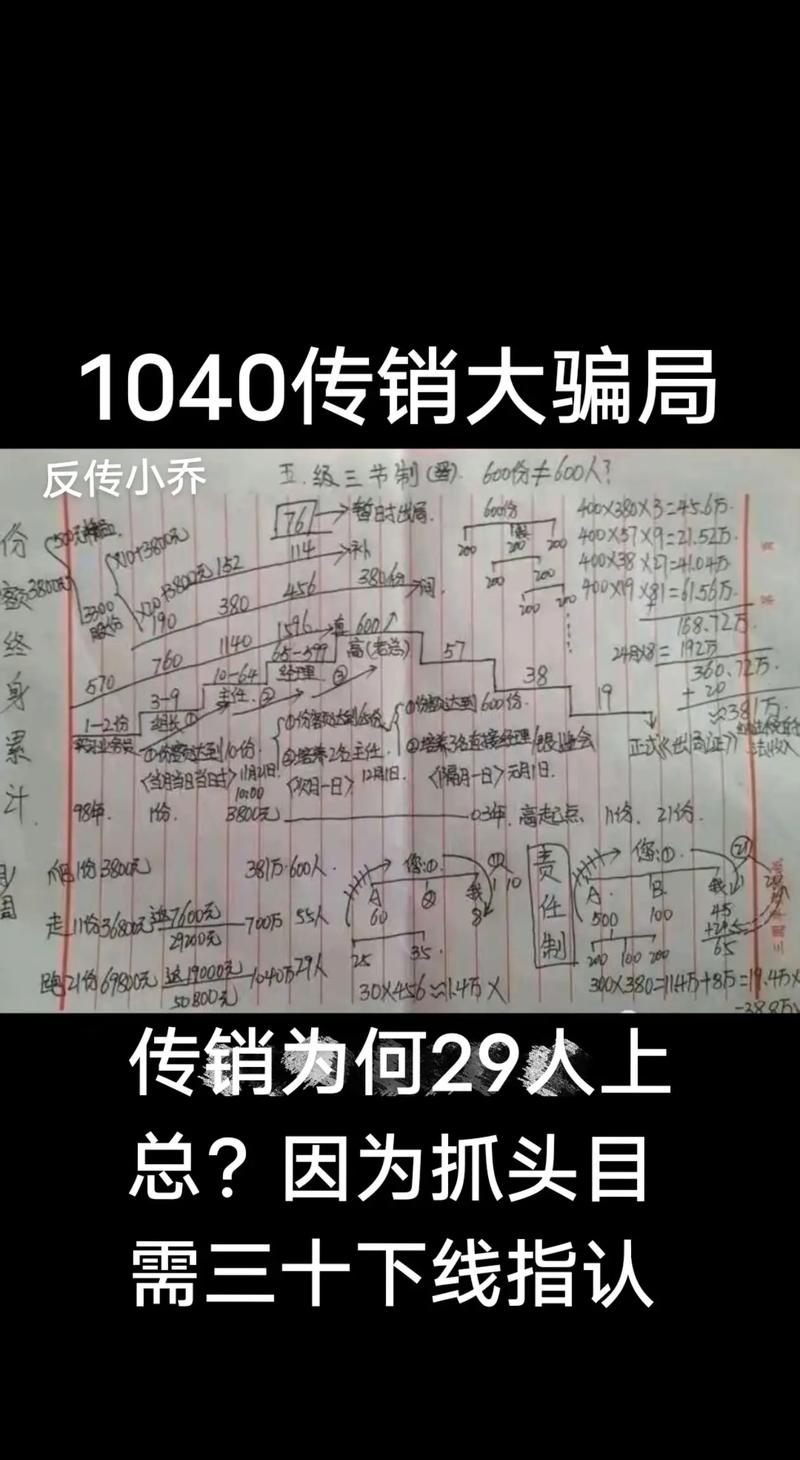 1040传销大骗局
反传小乔
五级三节制 600份≠600人?
份额终身累计
3800元
3300
股份
×10+3800元
190
152
114
76
暂时出局
补
380
456
380份
间
570
760
1140
1596
直
600↑
高(老总)
57
38
19
1-2份
3-9
组长①
10-64
主任②
65-599
经理③
600份
200 200 200
200 200
200 200
400×380×3=45.6万
400×57×9=21.52万
400×38×27=41.04万
400×19×81=61.56万
168.72万
192万
360.72万
+20
≈381万
正式《出局证》
①份额达到10份
《当月当日当时》11月21日
10:00
①份额达到65份
②培养2名主任
《次月一日》12月1日
①份额达到600份
②培养3名直接经理
《隔月一日》元月1日
98年 1份 3800元
03年 高起点 11份 21份
1份3800元 381万 600人
走11份36800元 7600元 700万 55人
29200元
跑21份69800元 19000元 1040万 29人
50800元
您①
A
60
25 35
30×456≈1.4万
责任制
您①
A B 我
500 100 45
200 100 200
65
300×380=11.4万+8万=19.4万×
传销为何29人上
总？因为抓头目
需三十下线指认